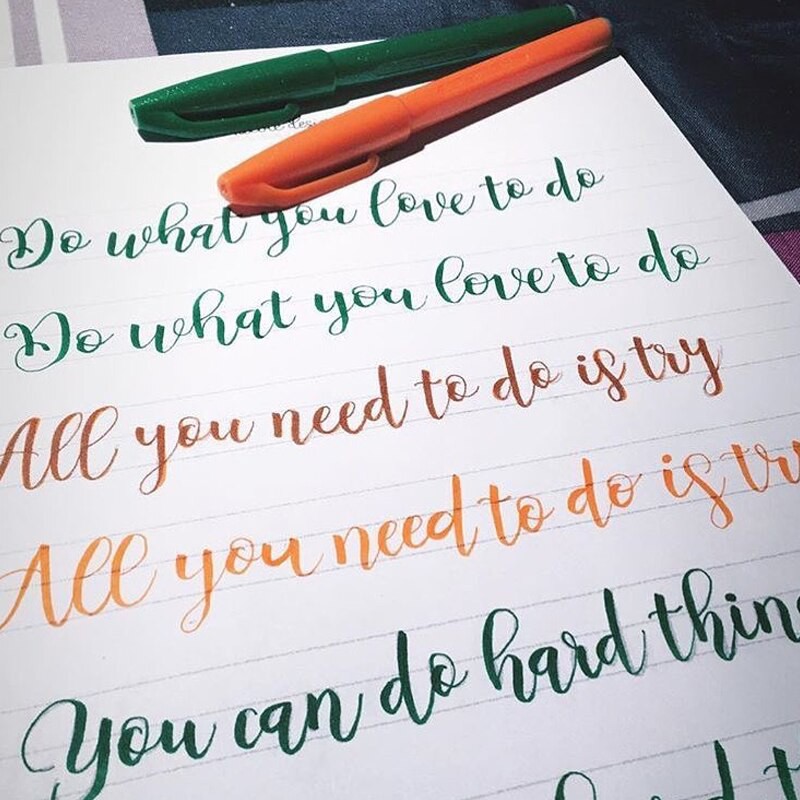 Do what you love to do
Do what you love to do
All you need to do is try
All you need to do is try
You can do hard thin
hard t